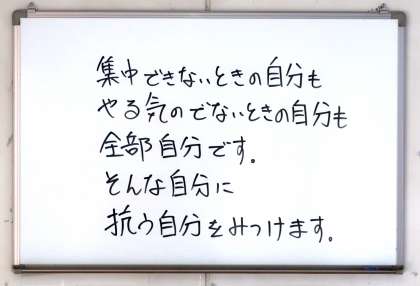 集中できないときの自分も
やる気のでないときの自分も
全部自分です。
そんな自分に
抗う自分をみつけます。